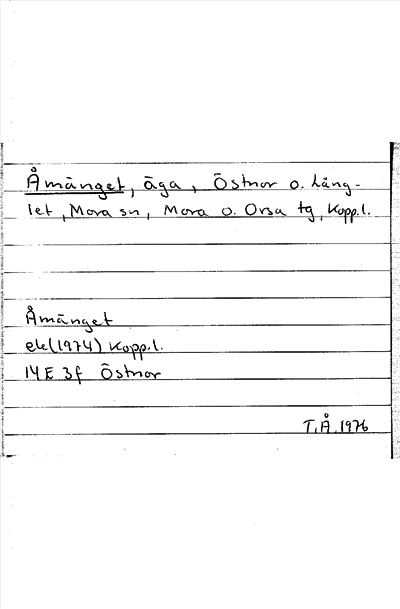 Åmänget, äga, Östnor o. Lång-
let, Mora sn, Mora o. Orsa tg, Kopp.l.
Åmänget
ek(1974) Kopp.l.
14E 3f Östnor
T.Å. 1976